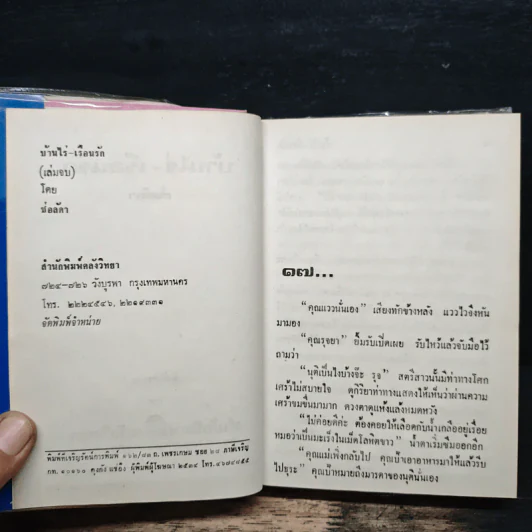 บ้านไร่-เรือนรัก
(เล่มจบ)
โดย
ช่อลัดา
สำนักพิมพ์คลังวิทยา
๗๒๔-๗๒๖ วังบุรพา กรุงเทพมหานคร
โทร. ๒๒๒๔๕๔๖, ๒๒๑๙๓๓๑
จัดพิมพ์จำหน่าย
พิมพ์ที่เจริญรัตน์การพิมพ์ ถ. เพชรเกษม ซอย ๒๘ ภาษีเจริญ
กท. ๑๐๑๖๐ ผู้พิมพ์ผู้โฆษณา ๒๕๓๔ โทร.
๑๗...
“คุณแววนั่นเอง” เสียงทักข้างหลัง แววไวจึงหัน
มามอง
“คุณรุจยา” ยิ้มรับเปิดเผย รับไหว้แล้วจับมือไว้
ถามว่า
“นุติเป็นไงบ้างจ๊ะ รุจ” สตรีสาวนั้นมีท่าทางโศก
เศร้าไม่สบายใจ ดูกิริยาท่าทางแสดงให้เห็นว่าผ่านความ
เศร้าขมขื่นมามาก ดวงตาดูแห้งแล้งหมดหวัง
“ไม่ค่อยดีค่ะ ต้องคอยให้เลือดกับน้ำเกลืออยู่เรื่อย
หมอว่าเป็นมะเร็งในเม็ดโลหิตขาว” น้ำตาเริ่มซึมออกอีก
“คุณแม่เพิ่งกลับไป คุณป้าเอาอาหารมาให้แล้วรีบ
ไปธุระ” คุณป้าหมายถึงมารดาของนุตินั่นเอง